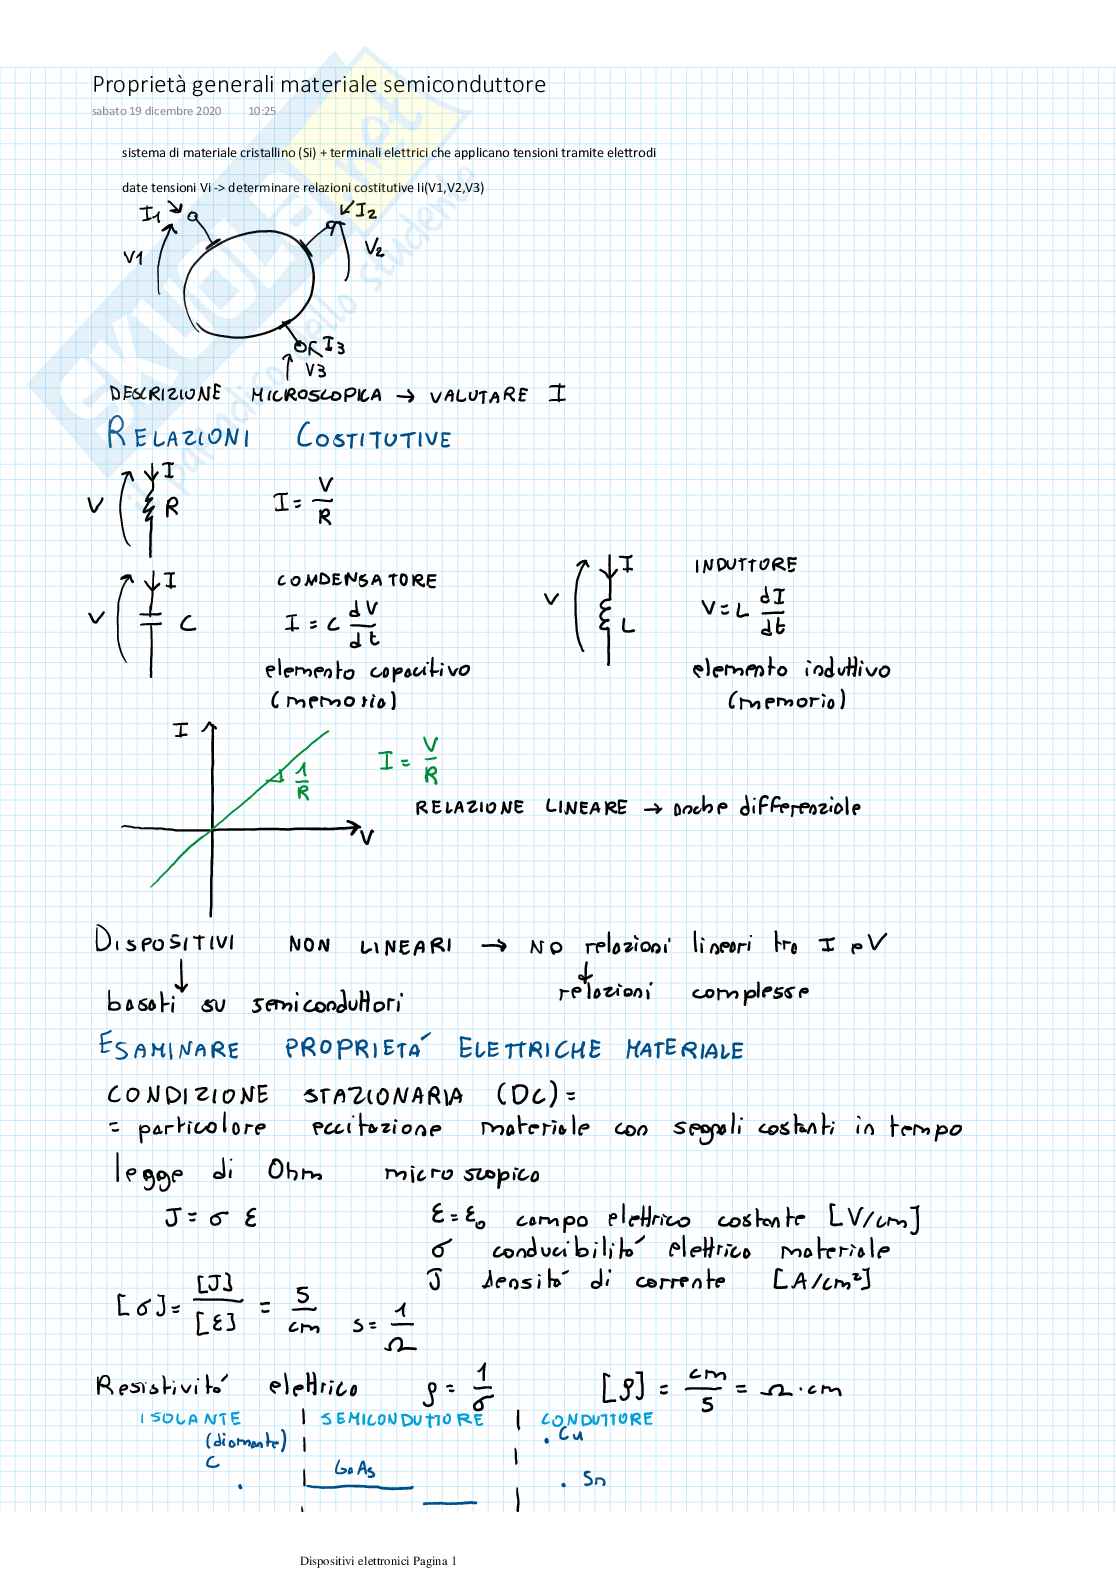 Proprietà generali materiale semiconduttore
sabato 19 dicembre 2020 10:25
sistema di materiale cristallino (Si) + terminali elettrici che applicano tensioni tramite elettrodi
date tensioni Vi -> determinare relazioni costitutive Ii(V1,V2,V3)
I1 I2
V1 V2
I3
V3
DESCRIZIONE MICROSCOPICA → VALUTARE I
RELAZIONI COSTITUTIVE
V I R I = V/R
V I C CONDENSATORE
I = C dV/dt
elemento capacitivo
(memoria)
V I L INDUTTORE
V = L dI/dt
elemento induttivo
(memoria)
I V 1/R I = V/R
RELAZIONE LINEARE → anche differenziale
DISPOSITIVI NON LINEARI → NO relazioni lineari tra I e V
↓ ↓
basati su semiconduttori relazioni complesse
ESAMINARE PROPRIETÁ ELETTRICHE MATERIALE
CONDIZIONE STAZIONARIA (DC) =
= particolare eccitazione materiale con segnali costanti in tempo
legge di Ohm microscopica
J = σ ε ε = ε0 campo elettrico costante [V/cm]
σ conducibilitá elettrica materiale
J densitá di corrente [A/cm²]
[σ] = [J]/[ε] = S/cm S = 1/Ω
Resistivitá elettrica ρ = 1/σ [ρ] = cm/S = Ω·cm
ISOLANTE SEMICONDUTTORE CONDUTTORE
(diamante) . Cu
C GaAs . Sn
Dispositivi elettronici Pagina 1
SKUOLA.net
il paradiso dello studente